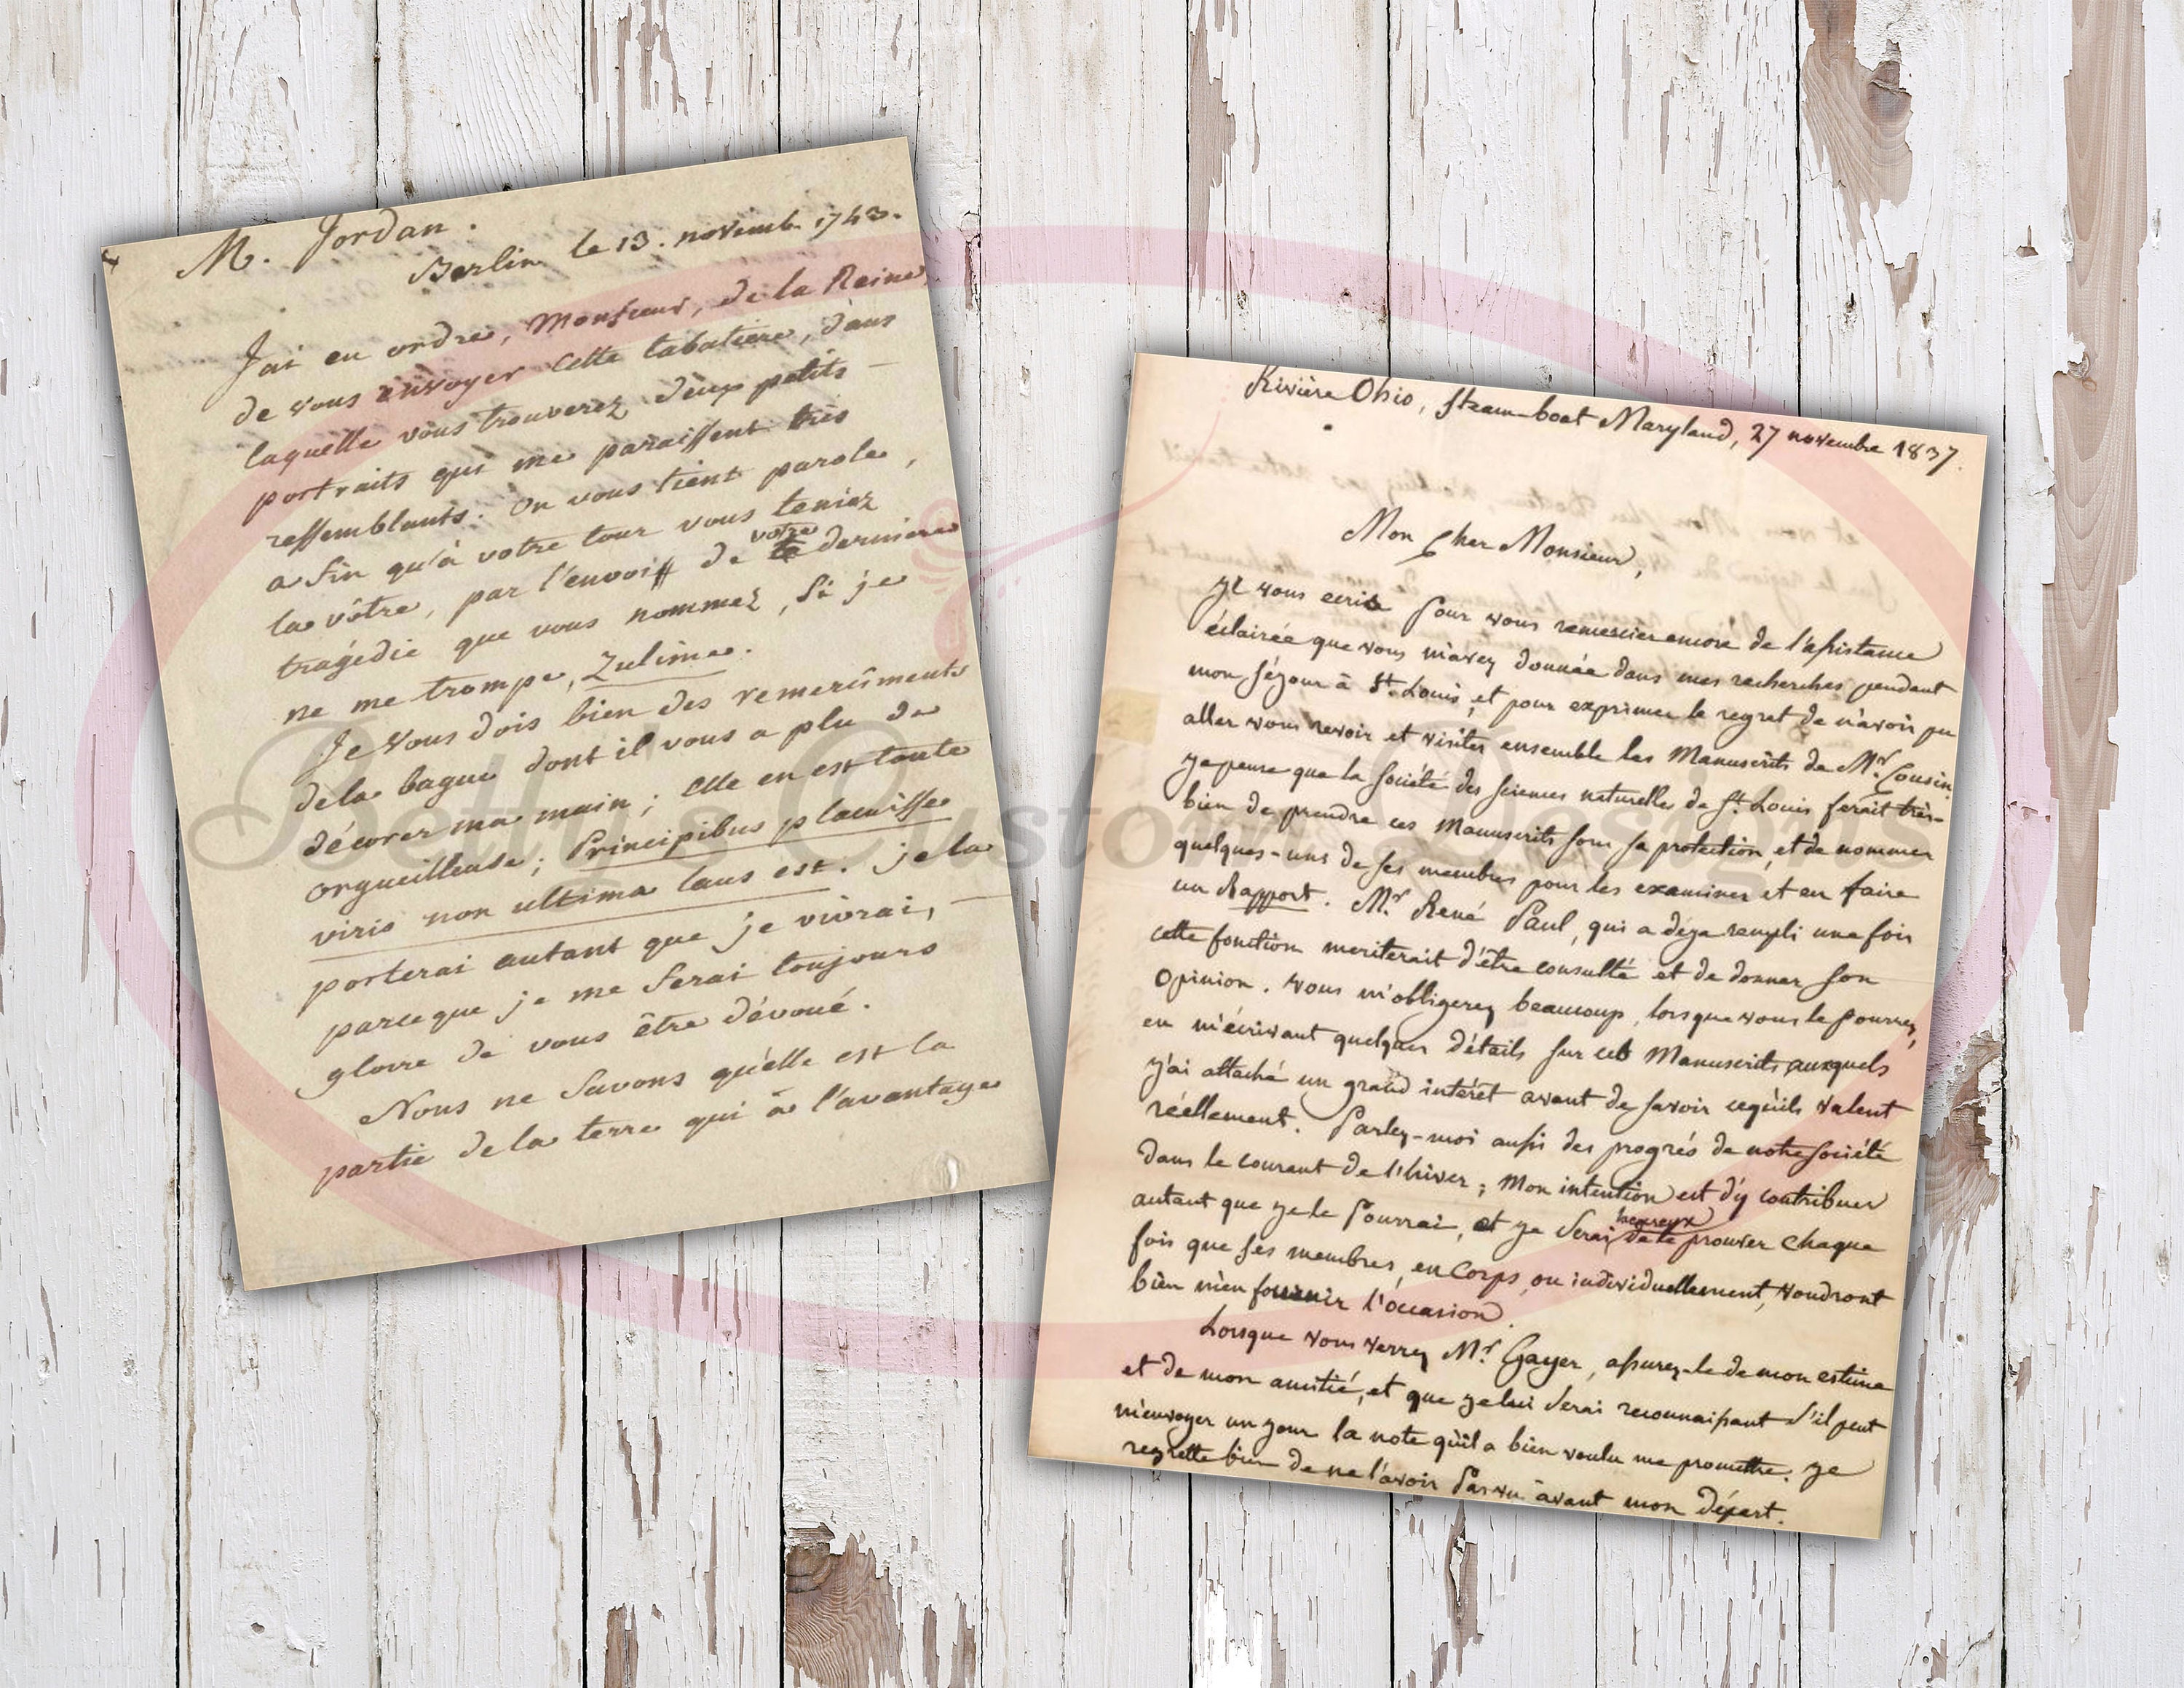 M. Jordan.
Berlin le 13. novemb. 1743.
J'ai eu ordre, Monsieur, de la Reine,
de vous envoyer cette tabatiere, dans
laquelle vous trouverez deux petits
portraits qui me paraissent très
ressemblants. On vous tient parole,
a fin qu'à votre tour vous teniez
votre
la vôtre, par l'envoi de la derniere
tragédie que vous nommez, si je
ne me trompe, Zulime.
Je vous dois bien des remercîments
dela bague dont il vous a plu de
décorer ma main; elle en est toute
orgueilleuse; Principibus placuisse
viris non ultima laus est. je la
porterai autant que je vivrai,
parceque je me ferai toujours
gloire de vous être dévoué.
Nous ne savons qu'elle est la
partie dela terre qui à l'avantage
Rivière Ohio, Steam-boat Maryland, 27 novembre 1837.
Mon cher Monsieur,
je vous ecris pour vous remercier encore de l'assistance
éclairée que vous m'avez donnée dans mes recherches pendant
mon séjour à St. Louis, et pour exprimer le regret de n'avoir pu
aller vous revoir et visiter ensemble les Manuscrits de Mr. Cousin.
je pense que la société des sciences naturelles de St. Louis ferait très-
bien de prendre ces Manuscrits sous sa protection, et de nommer
quelques-uns de ses membres pour les examiner et en faire
un Rapport. Mr. René Paul, qui a déja rempli une fois
cette fonction meriterait d'être consulté et de donner son
opinion. vous m'obligerez beaucoup, lorsque vous le pourrez,
en m'écrivant quelques détails sur ces Manuscrits auxquels
j'ai attaché un grand intérêt avant de savoir cequ'ils valent
réellement. Parlez-moi aussi des progrés de notre société
dans le courant de l'hiver; Mon intention est d'y contribuer
autant que je le pourrai, et je serai heureux de le prouver chaque
fois que ses membres, en Corps, ou individuellement, voudront
bien m'en fournir l'occasion.
Lorsque vous verrez Mr. Gayer, assurez-le de mon estime
et de mon amitié, et que je lui serai reconnaissant s'il peut
m'envoyer un jour la note qu'il a bien voulu me promettre. je
regrette bien de ne l'avoir pas vu avant mon départ.
Betty's Custom Designs